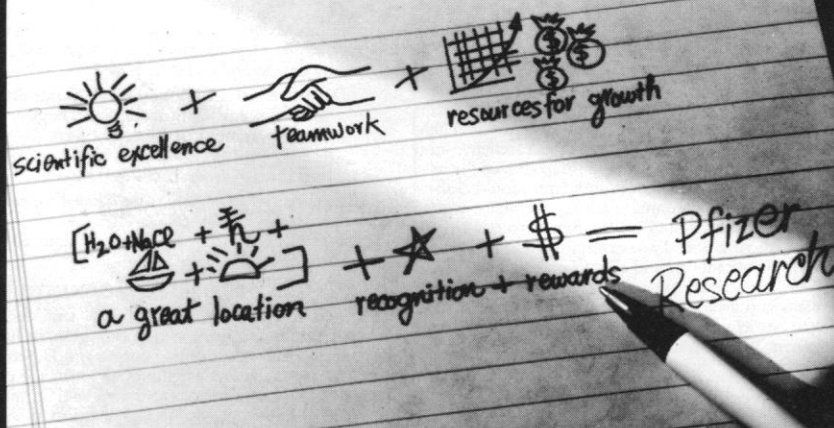 scientific excellence + teamwork + resources for growth
[H2O+NaCl + +
+ ] + + $ = Pfizer
a great location recognition + rewards Research